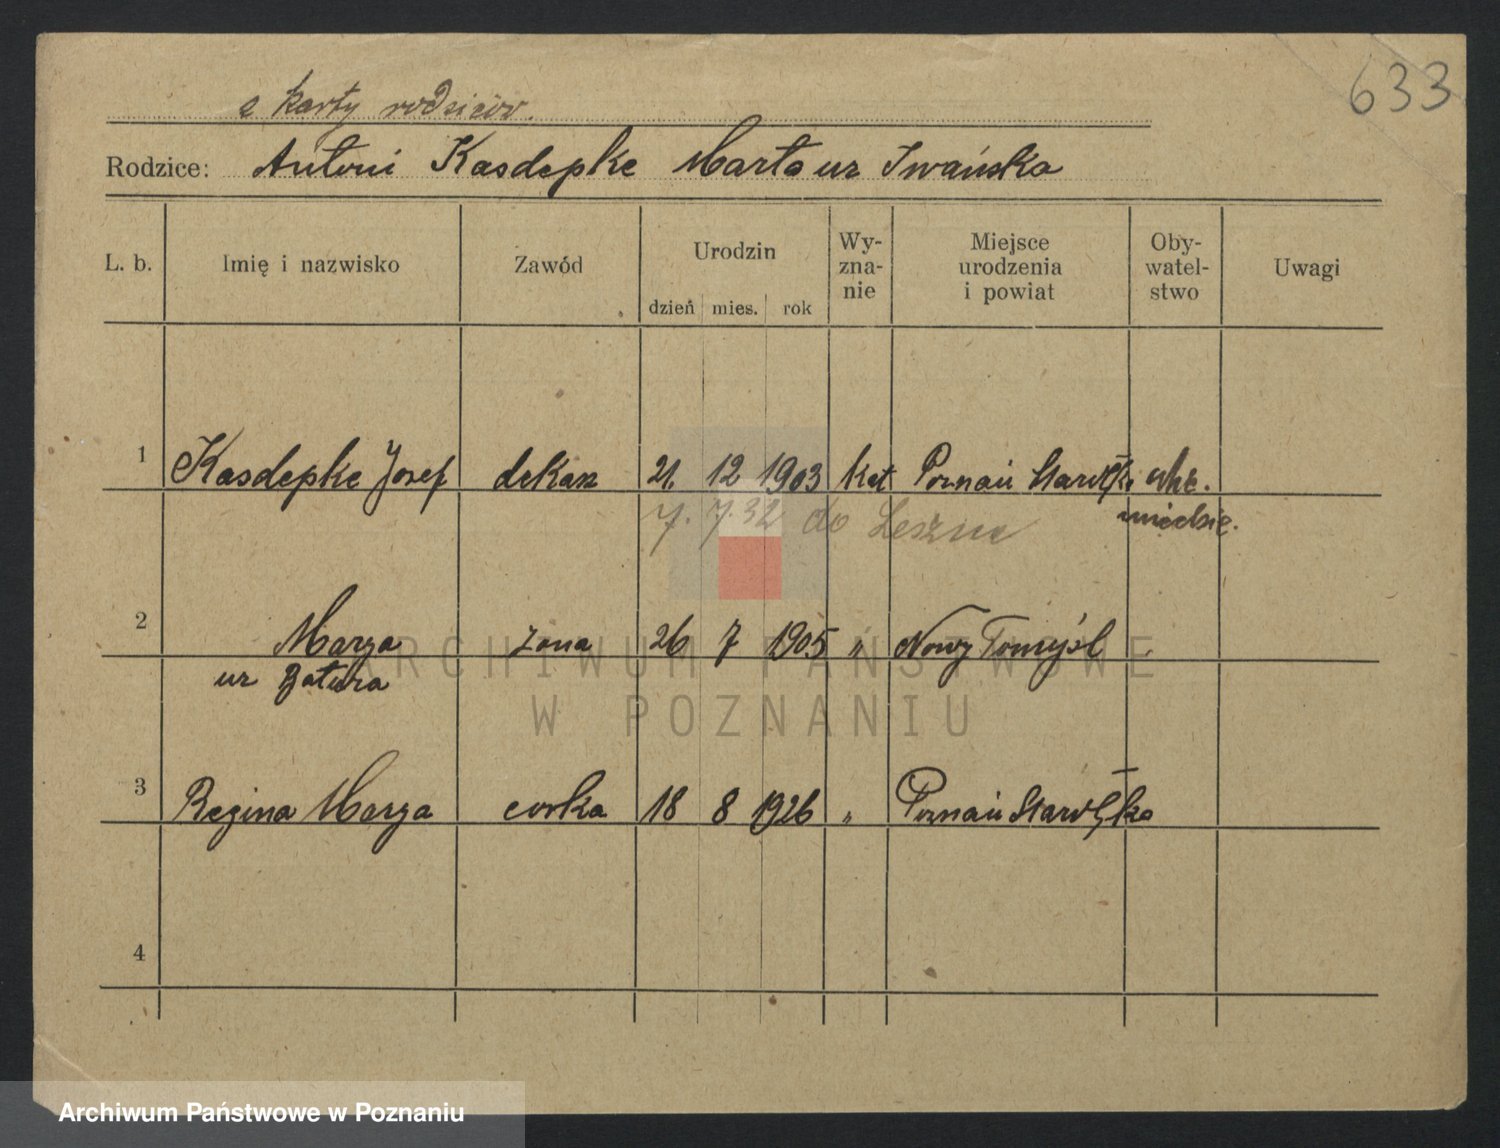 633
z karty rodziców.
Rodzice: Antoni Kasdepke Marta ur Iwańska
L. b. Imię i nazwisko Zawód Urodzin Wy-zna-nie Miejsce urodzenia i powiat Oby-watel-stwo Uwagi
dzień mies. rok
1 Kasdepke Józef dekarz 21. 12 1903 kat Poznań Starołęka
7. 7. 32 do Leszna
2 Marya żona 26 7 1905 " Nowy Tomyśl
ur
3 Regina Marya corka 18 8 1926 " Poznań Starołęka
4
ARCHIWUM PAŃSTWOWE
W POZNANIU
Archiwum Państwowe w Poznaniu